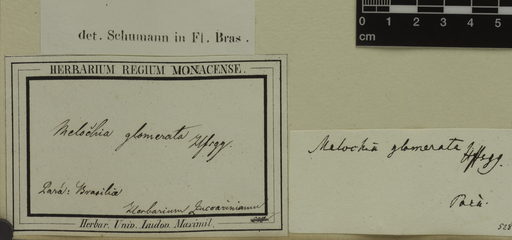 det. Schumann in Fl. Bras.
0 1 2 3 4 5
cm
HERBARIUM REGIUM MONACENSE.
Melochia glomerata Hffsgg.
Pará: Brasilia
Herbarium Zuccarinianum
Herbar. Univ. Ludov. Maximil.
Melochia glomerata Hffsgg.
Pará.